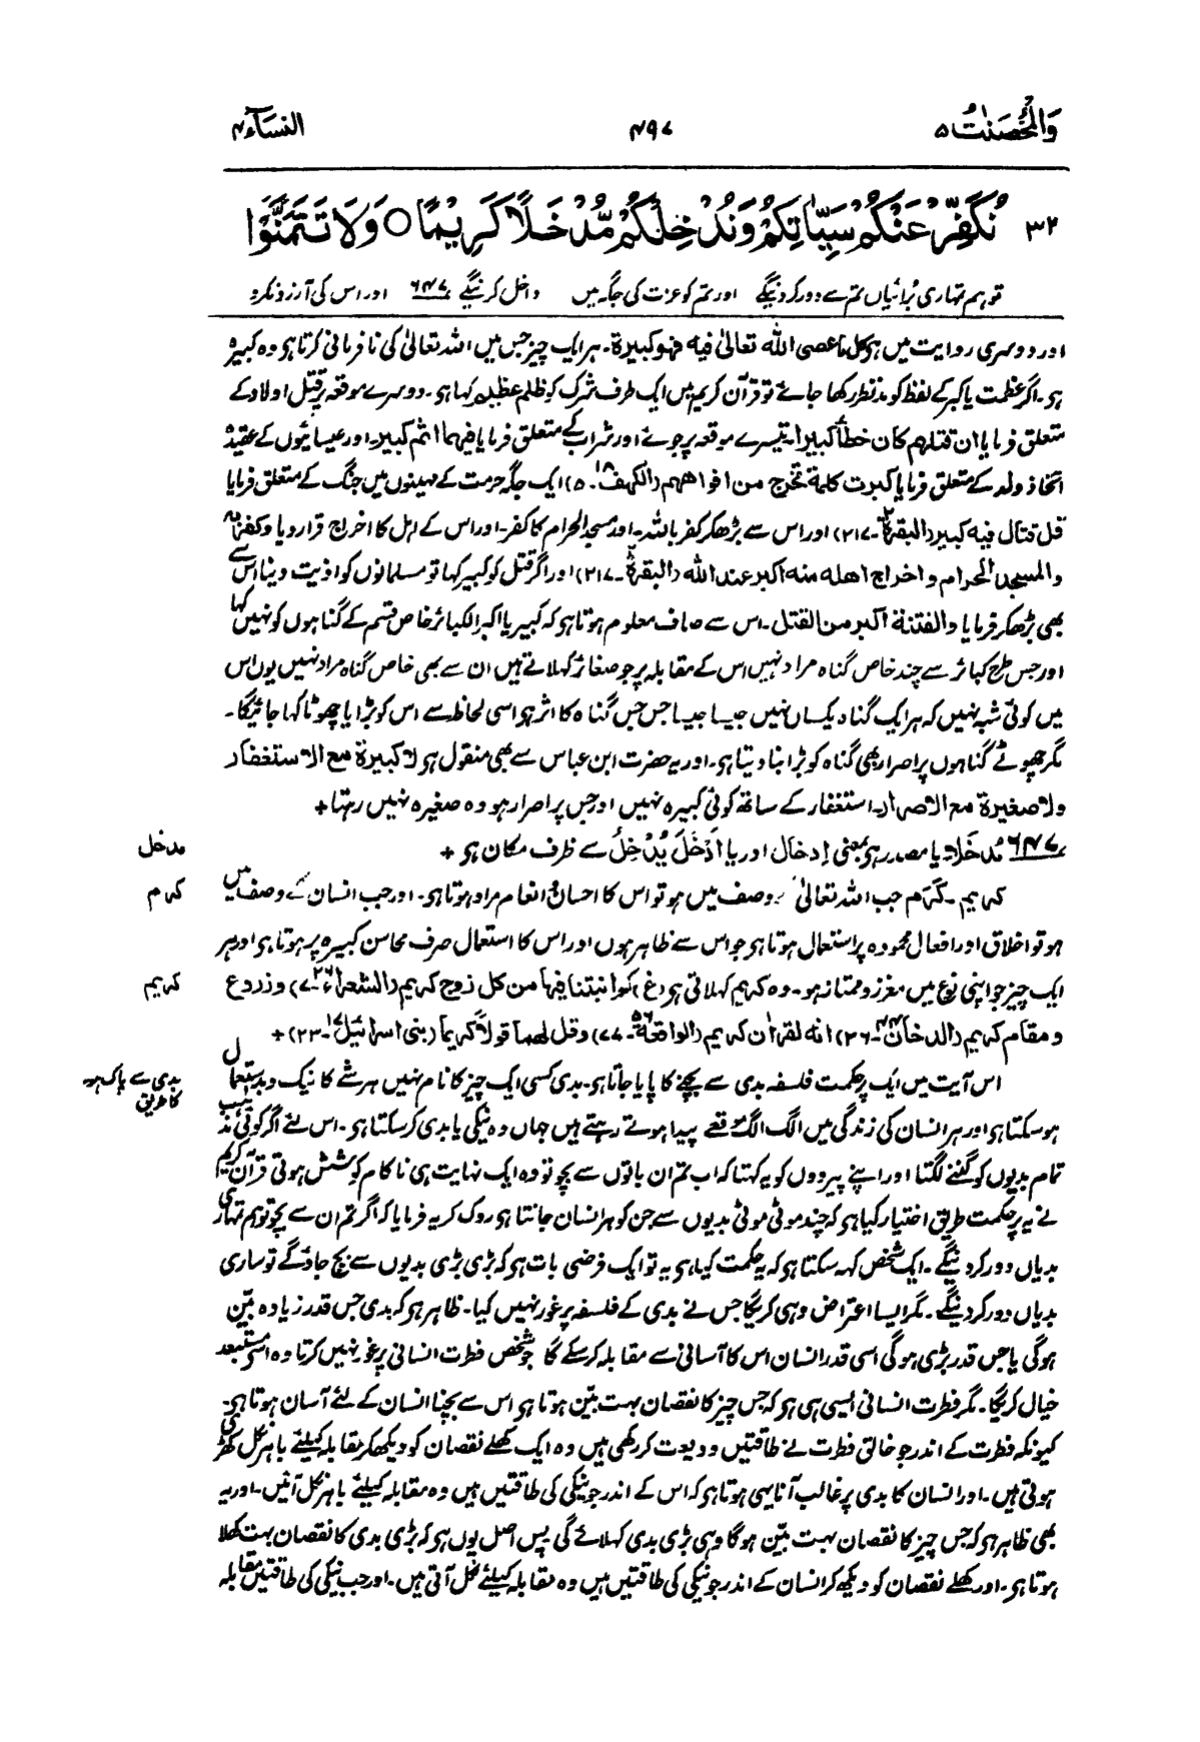 والمحصنٰت ۵
۴۹۷
النسآء ۴
۳۲ نُكَفِّرْ عَنْكُمْ سَيِّاٰتِكُمْ وَنُدْخِلْكُمْ مُّدْخَلًا كَرِيْمًا ○ وَلَا تَتَمَنَّوْا
تو ہم تمہاری بُرائیاں تم سے دور کردینگے اور تم کو عزت کی جگہ میں داخل کرینگے ۶۴۷ اور اس کی آرزو نہ کرو
اور دوسری روایت میں ہو کل ما عصی اللہ تعالیٰ فیہ فہو کبیرة۔ ہر ایک چیز جس میں اللہ تعالیٰ کی نافرمانی کرتا ہو وہ کبیرہ
ہو۔ اگر عظمت یا کبر کے لفظ کو مدنظر رکھا جائے تو قرآن کریم میں ایک طرف شرک کو ظلم عظیم کہا ہو۔ دوسرے موقعہ پر قتل اولاد کے
متعلق فرمایا ان قتلہم کان خطأ کبیرا۔ تیسرے موقعہ پر جوئے اور شراب کے متعلق فرمایا فیہما اثم کبیر۔ اور عیسائیوں کے عقیدہ
اتخاذ ولد کے متعلق فرمایا کبرت کلمة تخرج من افواھھم (الکہف ۱۸۔ ۵) ایک جگہ حرمت کے مہینوں میں جنگ کے متعلق فرمایا
قل قتال فیہ کبیر (البقرة ۲۔ ۲۱۷) اور اس سے بڑھکر کفر باللہ۔ اور مسجد الحرام کا کفر۔ اور اس کے اہل کا اخراج قرار دیا وکفر بہ
والمسجد الحرام واخراج اھلہ منہ اکبر عند اللہ (البقرة ۲۔ ۲۱۷) اور اگر قتل کو کبیر کہا تو مسلمانوں کو اذیت دینا اس سے
بھی بڑھکر فرمایا والفتنة اکبر من القتل۔ اس سے صاف معلوم ہوتا ہو کہ کبیر یا اکبر الکبائر خاص قسم کے گناہوں کو نہیں کہا
اور جس طرح کبائر سے چند خاص گناہ مراد نہیں اس کے مقابلہ پر جو صغائر کہلاتے ہیں ان سے بھی خاص گناہ مراد نہیں یوں اس
میں کوئی شبہ نہیں کہ ہر ایک گناہ یکساں نہیں جیسا جیسا جس جس گناہ کا اثر ہو اسی لحاظ سے اس کو بڑا یا چھوٹا کہا جائیگا۔
مگر چھوٹے گناہوں پر اصرار بھی گناہ کو بڑا بنا دیتا ہو۔ اور یہ حضرت ابن عباس سے بھی منقول ہو لا کبیرة مع الاستغفار
ولا صغیرة مع الاصرار۔ استغفار کے ساتھ کوئی کبیرہ نہیں اور جس پر اصرار ہو وہ صغیرہ نہیں رہتا +
۶۴۷ مُدْخَلًا۔ یا مصدر ہو بمعنی اِدخال اور یا اَدْخَلَ يُدْخِلُ سے ظرف مکان ہو +
مدخل
کریم۔ کَرَم جب اللہ تعالیٰ وصف میں ہو تو اس کا احسان و انعام مراد ہوتا ہو۔ اور جب انسان کے وصف میں
کرم
ہو تو اخلاق اور افعال محمودہ پر استعمال ہوتا ہو جو اس سے ظاہر ہوں اور اس کا استعمال صرف محاسن کبیرہ پر ہوتا ہو اور ہر
ایک چیز جو اپنی نوع میں معزز و ممتاز ہو۔ وہ کریم کہلاتی ہو (غ) کو انبتنا فیہا من کل زوج کریم (الشعراء ۲۶۔ ۷) وزروع
کریم
ومقام کریم (الدخان ۴۴۔ ۲۶) انہ لقراٰن کریم (الواقعة ۵۶۔ ۷۷) وقل لھما قولاً کریما (بنی اسرائیل ۱۷۔ ۲۳) +
اس آیت میں ایک پرحکمت فلسفہ بدی سے بچنے کا پایا جاتا ہو۔ بدی کسی ایک چیز کا نام نہیں ہر شے کا نیک و بد استعمال
بدی سے پاک ہونے کا طریق
ہو سکتا ہو اور ہر انسان کی زندگی میں الگ الگ موقعے پیدا ہوتے رہتے ہیں جہاں وہ نیکی یا بدی کر سکتا ہو۔ اس لئے اگر کوئی مذہب
تمام بدیوں کو گننے لگتا اور اپنے پیرووں کو یہ کہتا کہ اب تم ان باتوں سے بچو تو وہ ایک نہایت ہی ناکام کوشش ہوتی قرآن کریم
نے یہ پرحکمت طریق اختیار کیا ہو کہ چند موٹی موٹی بدیوں سے جن کو ہر انسان جانتا ہو روک کر یہ فرمایا کہ اگر تم ان سے بچو تو ہم تمہاری
بدیاں دور کر دینگے۔ ایک شخص کہہ سکتا ہو کہ یہ حکمت کیا ہو یہ تو ایک فرضی بات ہو کہ بڑی بڑی بدیوں سے بچ جاؤ گے تو ساری
بدیاں دور کر دینگے۔ مگر ایسا اعتراض وہی کریگا جس نے بدی کے فلسفہ پر غور نہیں کیا۔ ظاہر ہو کہ بدی جس قدر زیادہ بیّن
ہوگی یا جس قدر بڑی ہوگی اسی قدر انسان اس کا آسانی سے مقابلہ کر سکے گا جو شخص فطرت انسانی پر غور نہیں کرتا وہ اسے مستبعد
خیال کریگا۔ مگر فطرت انسانی ایسی ہی ہو کہ جس چیز کا نقصان بہت بیّن ہوتا ہو اس سے بچنا انسان کے لئے آسان ہوتا ہو۔
کیونکہ فطرت کے اندر جو خالق فطرت نے طاقتیں ودیعت کر رکھی ہیں وہ ایک کھلے نقصان کو دیکھکر مقابلہ کیلئے باہر نکل کھڑی
ہوتی ہیں۔ اور انسان کا بدی پر غالب آنا یہی ہوتا ہو کہ اس کے اندر جو نیکی کی طاقتیں ہیں وہ مقابلہ کیلئے باہر نکل آئیں۔ اور یہ
بھی ظاہر ہو کہ جس چیز کا نقصان بہت بیّن ہوگا وہی بڑی بدی کہلائے گی پس اصل یوں ہو کہ بڑی بدی کا نقصان بہت کھلا
ہوتا ہو۔ اور کھلے نقصان کو دیکھ کر انسان کے اندر جو نیکی کی طاقتیں ہیں وہ مقابلہ کیلئے نکل آتی ہیں۔ اور جب نیکی کی طاقتیں مقابلہ